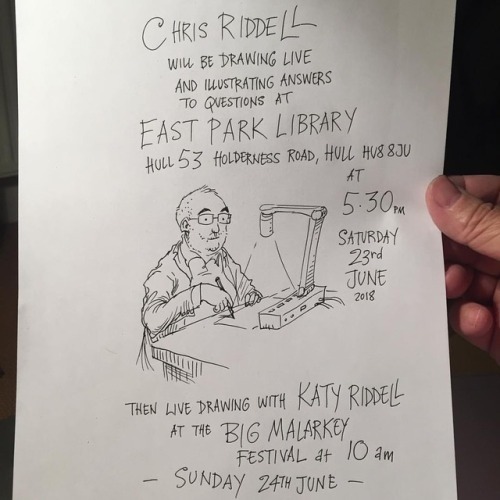 CHRIS RIDDELL
WILL BE DRAWING LIVE
AND ILLUSTRATING ANSWERS
TO QUESTIONS AT
EAST PARK LIBRARY
HULL 53 HOLDERNESS ROAD, HULL HU8 8JU
AT
5·30 PM
SATURDAY
23rd
JUNE
2018
THEN LIVE DRAWING WITH KATY RIDDELL
AT THE BIG MALARKEY
FESTIVAL at 10 am
— SUNDAY 24TH JUNE —